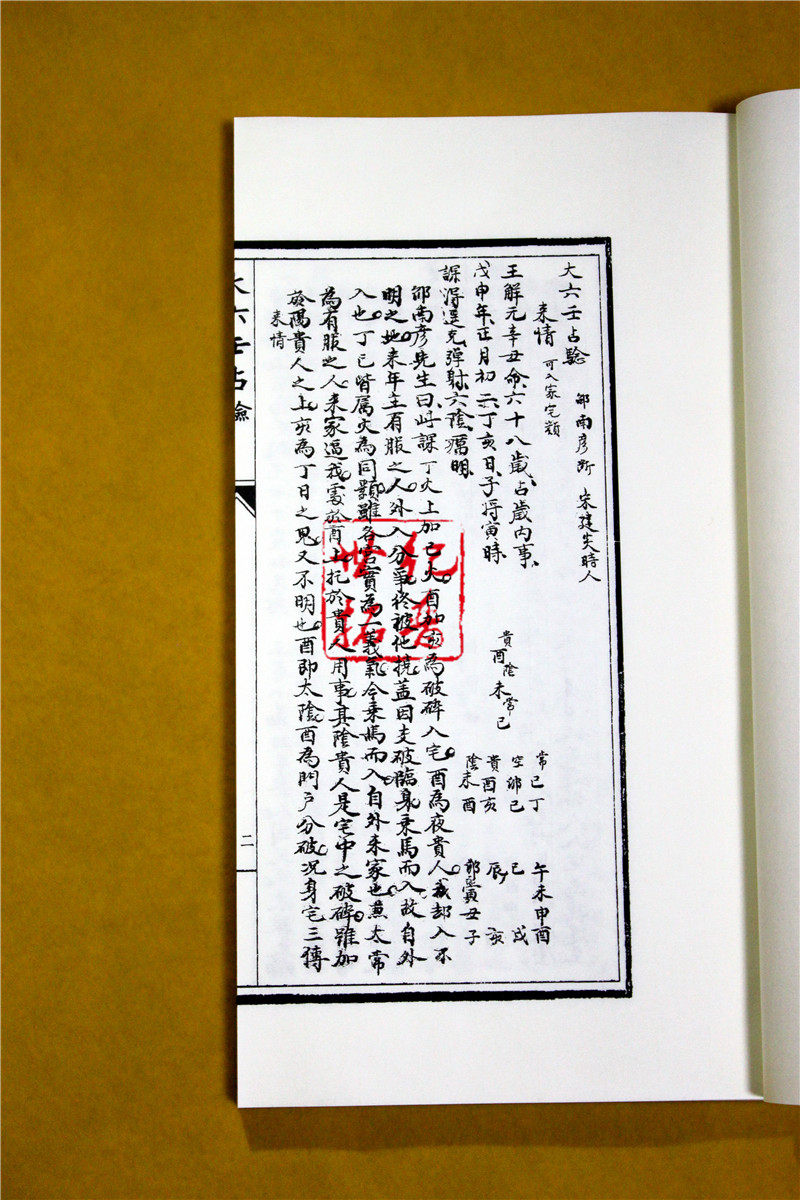 大六壬占驗　邵南彥断　宋建炎時人
来情　可入家宅類
王解元辛丑命、六十八歲、占歲内事、
戊申年、正月初二丁亥日、子將寅時、
課得逆克彈射、六陰獨明、
貴酉
陰未
常巳
常巳丁
空卯巳
貴酉亥
陰未酉
午未申酉
巳　戌
辰　亥
卯寅丑子
邵南彥先生曰、此課丁火上加巳火、自加亥為破碎入宅、酉為夜貴人、我却入不
明之地、来年主有服之人外入分爭、終被他擾、盖因支破臨身、乘馬而入、故自外
入也、丁巳皆屬火為同類、雖各宫實為一義氣、今乘馬而入、自外来家也、蓋太常
為有服之人、来家逼我、處於酉上、托於貴人用事、其陰貴人是宅中之破碎、雖加
於陽貴人之上、亥為丁日之鬼、又不明也、酉即太陰、酉為門户分破、况身宅三傳
来情
大六壬占驗
二
世纪
拓普